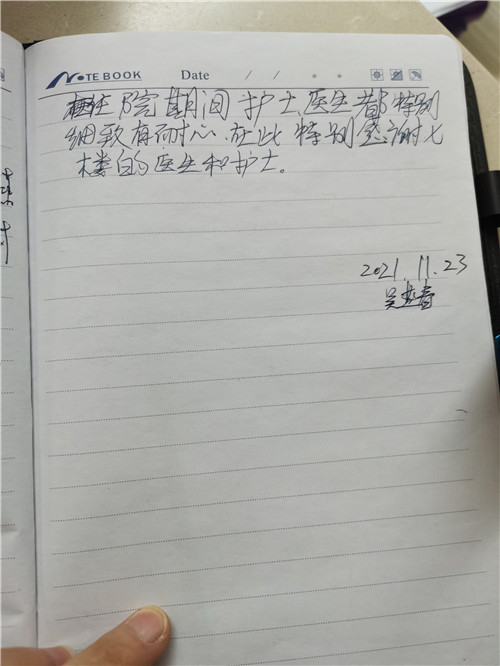 NOTEBOOK Date / /
在住院期间护士医生都特别
细致有耐心.在此特别感谢七
楼的医生和护士。
2021.11.23